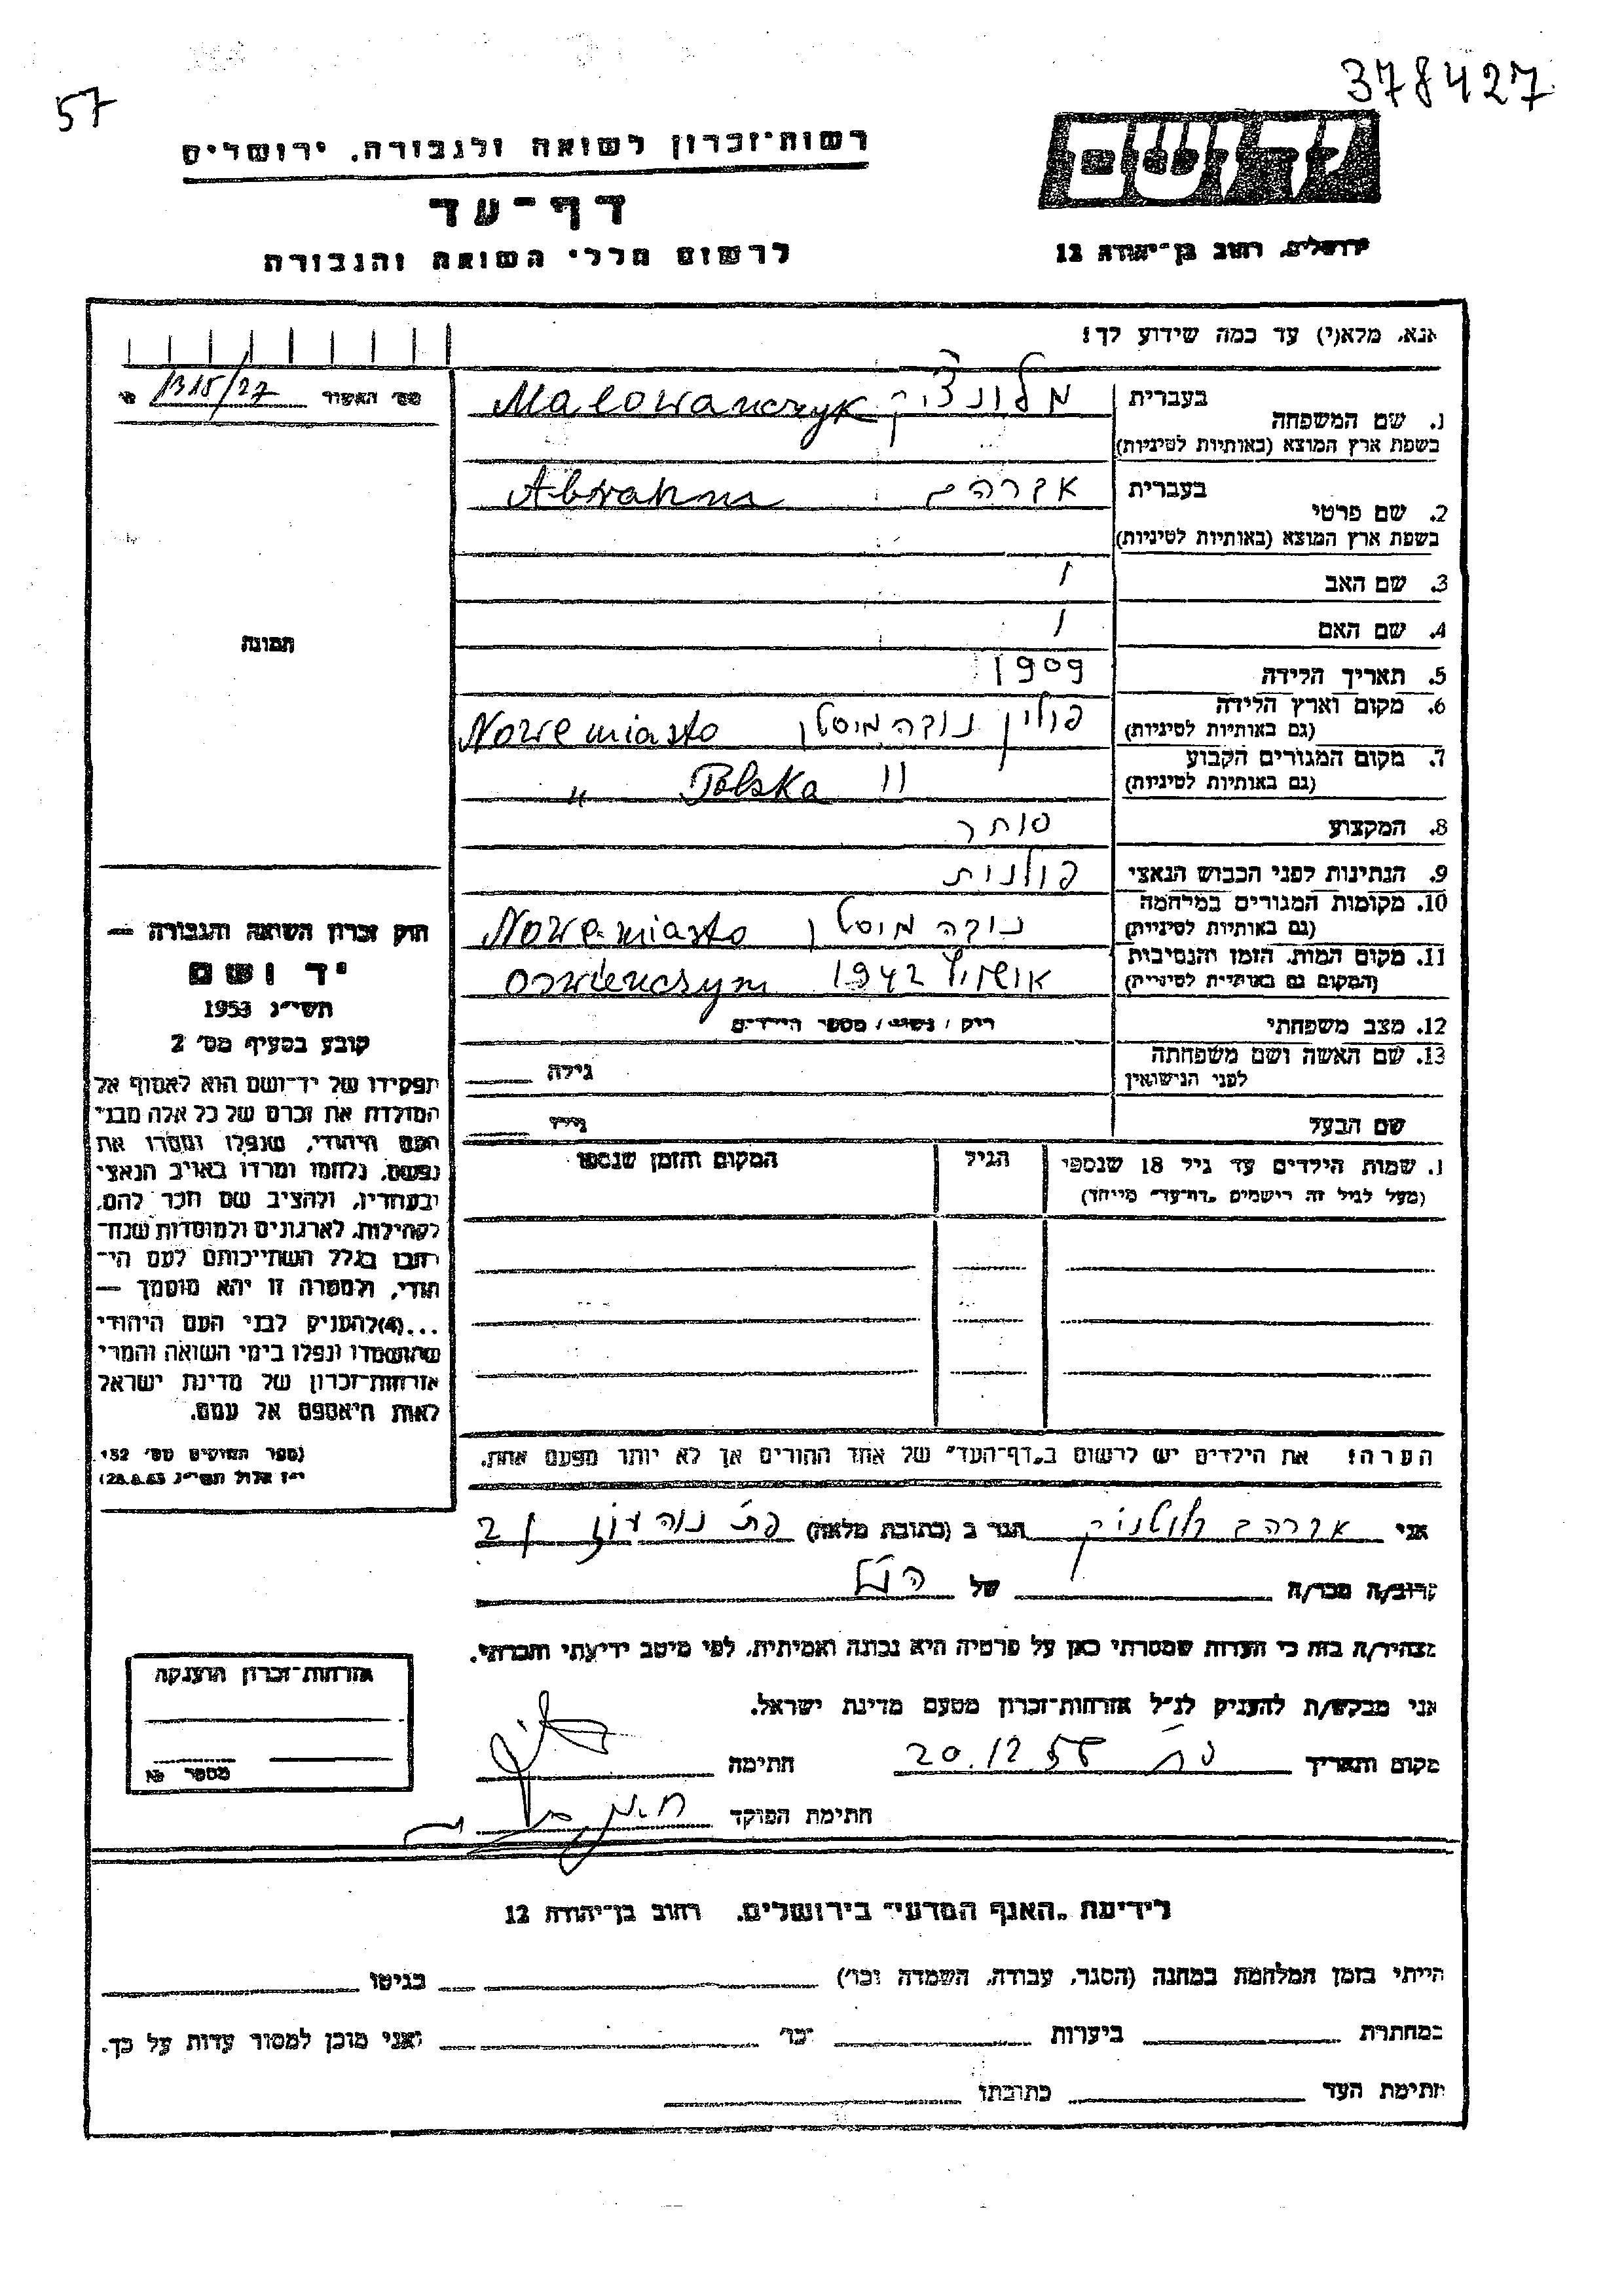 57
378427
רשות־זכרון לשואה ולגבורה. ירושלים
דף־עד
לרשום חללי השואה והגבורה
יד ושם
ירושלים, רחוב בן־יהודה 12
אנא, מלא(י) עד כמה שידוע לך!
מס׳ האשור 1315/27
1. שם המשפחה
בעברית
בשפת ארץ המוצא (באותיות לטיניות)
Małowańczyk
2. שם פרטי
בעברית אברהם
בשפת ארץ המוצא (באותיות לטיניות)
Abraham
3. שם האב /
4. שם האם /
5. תאריך הלידה 1909
6. מקום וארץ הלידה
(גם באותיות לטיניות)
פולין נובה מיסטו Nowe miasto
7. מקום המגורים הקבוע
(גם באותיות לטיניות)
" Polska "
8. המקצוע סוחר
9. הנתינות לפני הכבוש הנאצי פולנית
10. מקומות המגורים במלחמה
(גם באותיות לטיניות)
נובה מיסטו Nowe-miasto
11. מקום המות, הזמן והנסיבות
(המקום גם באותיות לטיניות)
אושויץ 1942 Oswienczym
12. מצב משפחתי רוק / נשוי / מספר הילדים
13. שם האשה ושם משפחתה
לפני הנישואין
גילה
שם הבעל
גילו
1. שמות הילדים עד גיל 18 שנספו
(מעל לגיל זה רישמים „דף־עד" מייחד)
הגיל
המקום והזמן שנספו
הערה! את הילדים יש לרשום ב„דף־העד" של אחד ההורים אך לא יותר מפעם אחת.
תמונה
חוק זכרון השואה והגבורה —
יד ושם
תשי״ג 1953
קובע בסעיף מס׳ 2
תפקידו של יד־ושם הוא לאסוף אל
המולדת את זכרם של כל אלה מבני
העם היהודי, שנפלו ומסרו את
נפשם, נלחמו ומרדו באויב הנאצי
ובעוזריו, ולהציב שם וזכר להם,
לקהילות, לארגונים ולמוסדות שנח־
רבו בגלל השתייכותם לעם הי־
הודי, ולמטרה זו יהא מוסמך —
...(4)להעניק לבני העם היהודי
שהושמדו ונפלו בימי השואה והמרי
אזרחות־זכרון של מדינת ישראל
לאות היאספם אל עמם.
(ספר החוקים מס׳ 132
י״ז אלול תשי״ג 28.8.53)
אני אברהם הגר ב (כתובת מלאה) פת נוה עוז
קרוב/ה מכר/ה של הנ"ל
מצהיר/ה בזה כי העדות שמסרתי כאן על פרטיה היא נכונה ואמיתית, לפי מיטב ידיעתי והכרתי.
אני מבקש/ת להעניק לנ״ל אזרחות־זכרון מטעם מדינת ישראל.
מקום ותאריך 20.12.55 חתימה
חתימת הפוקד
אזרחות־זכרון הוענקה
מספר
לידיעת „האגף המדעי" בירושלים. רחוב בן־יהודה 12
הייתי בזמן המלחמה במחנה (הסגר, עבודה, השמדה וכו׳) בגיטו
במחתרת ביערות וכו׳ ואני מוכן למסור עדות על כך.
חתימת העד כתובתו